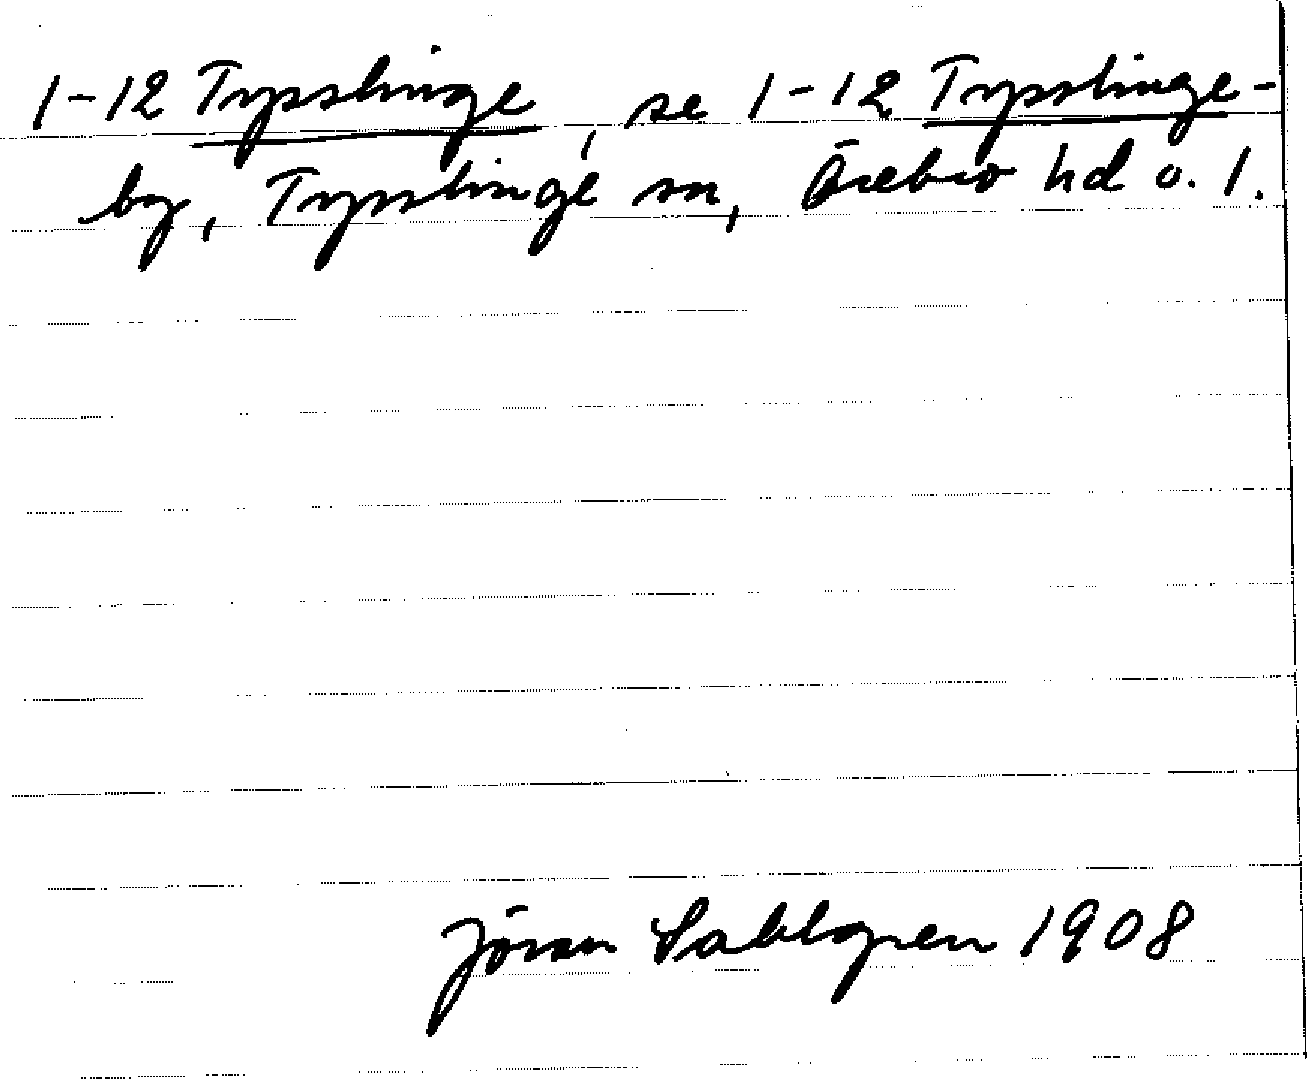 1-12 Tysslinge, se 1-12 Tysslinge-
by, Tysslinge sn, Örebro hd o. l.
Jöran Sahlgren 1908